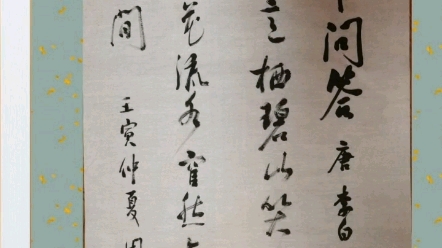 中问答 唐 李白
意栖碧山笑
花流水窅然
间 壬寅仲夏